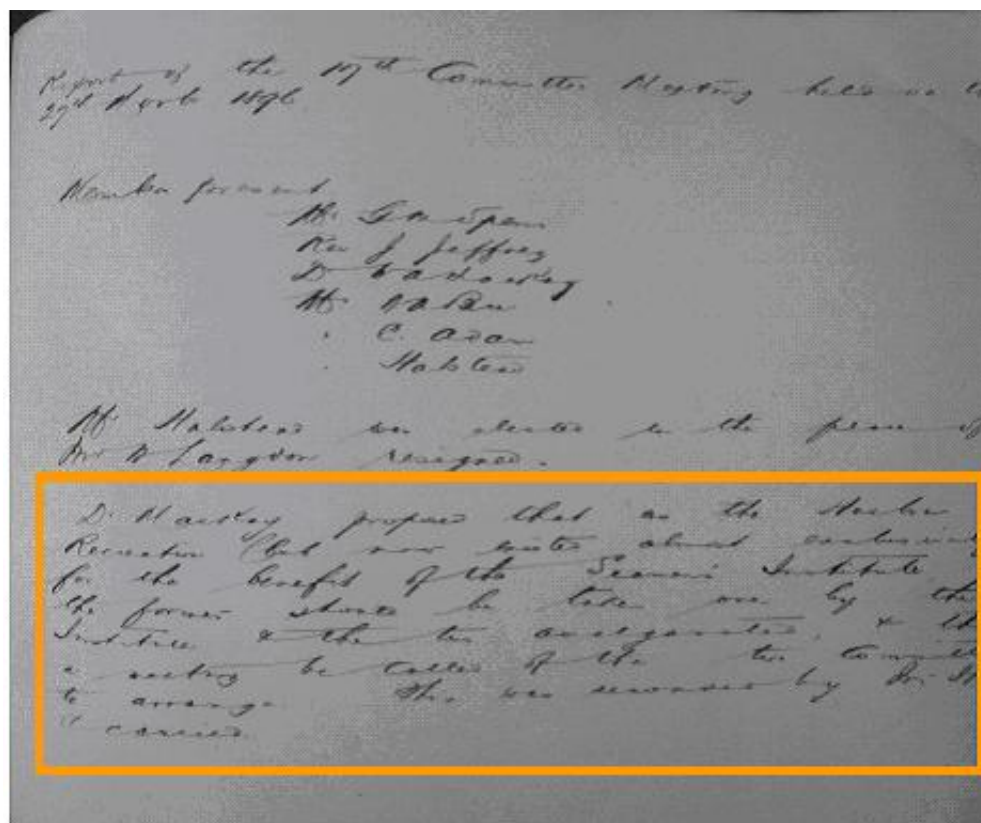 Report of the 17th Committee Meeting held on
29th March 1896
Members present
Mr.
Rev J Jeffrey
Dr Mackey
Mr.
C. Adam
Halstead
Mr Halstead was elected in the place of
Mr Langdon resigned.
Dr Mackey proposed that as the
Recreation Club now exists almost exclusively
for the benefit of the Seamen's Institute
the former should be taken over by the
Institute & the two amalgamated, &
a meeting be called of the two
to arrange. This was seconded by
& carried.